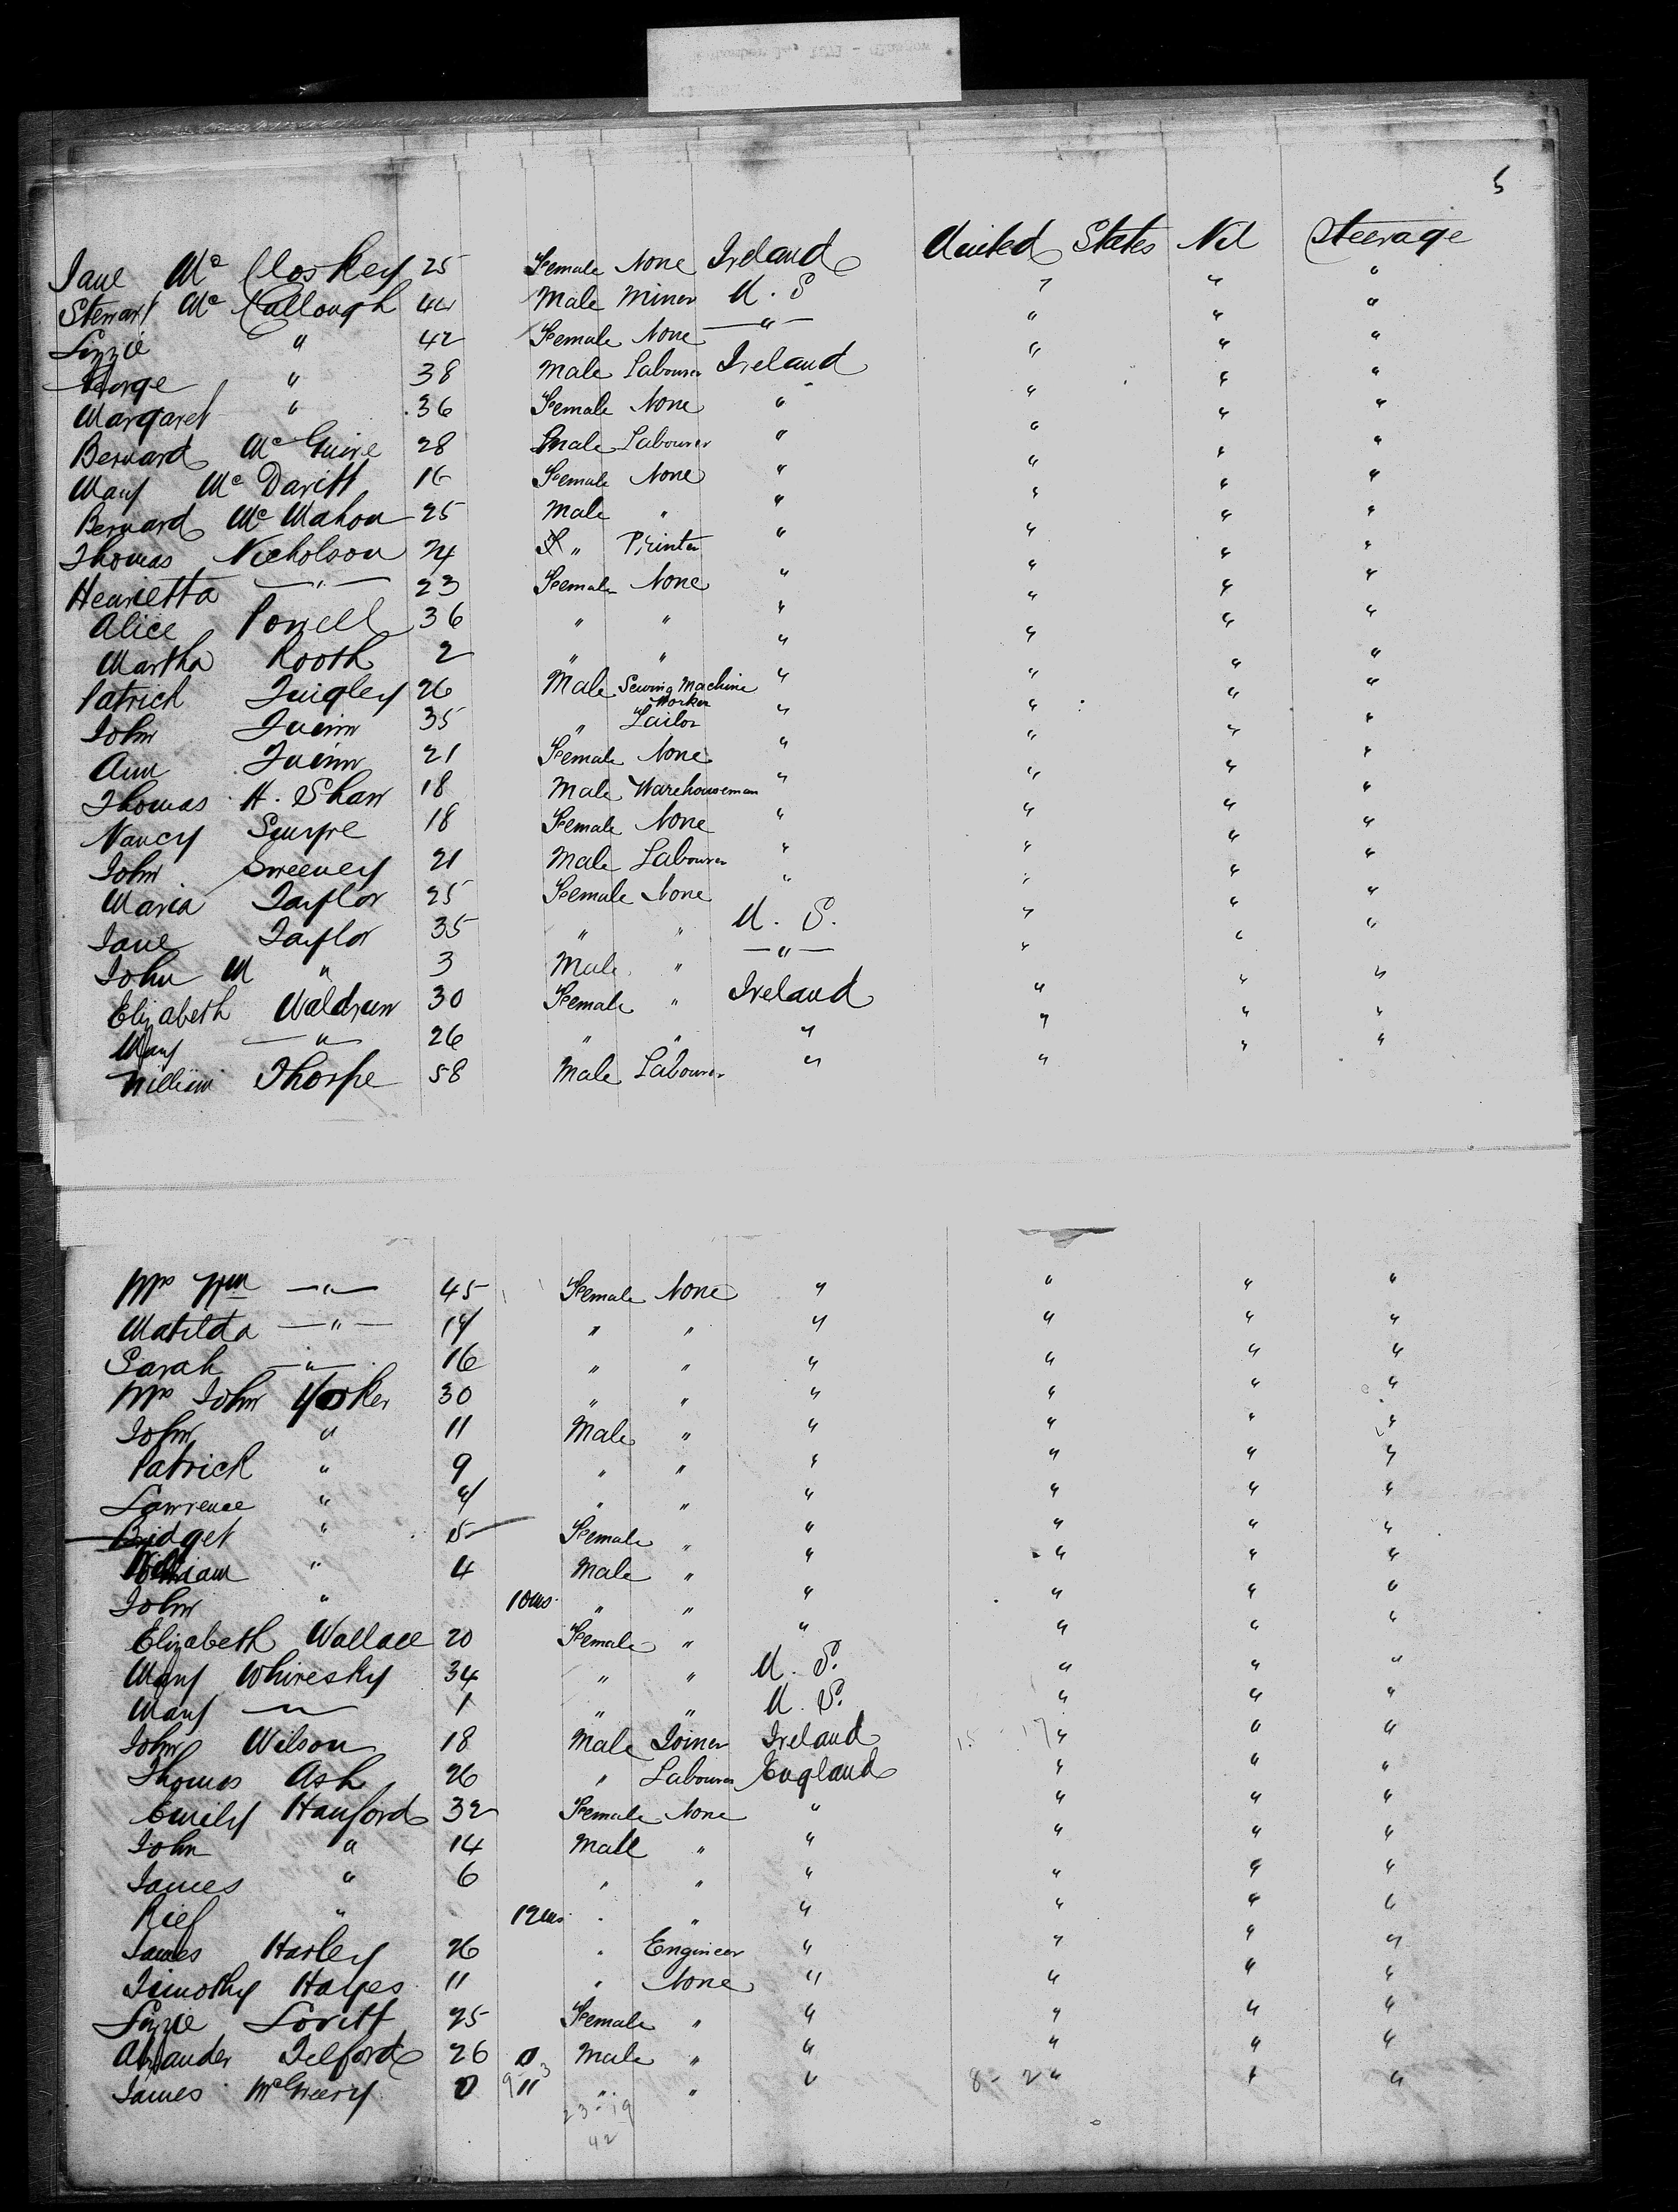 5
Jane Mc Closkey 25 Female None Ireland United States Nil Steerage
Stewart Mc Callough 44 Male Miner U.S " " "
Lizzie " 42 Female None " " " "
George " 38 Male Labourer Ireland " " "
Margaret " 36 Female None " " " "
Bernard Mc Guire 28 Male Labourer " " " "
Mary Mc Davitt 16 Female None " " " "
Bernard Mc Mahon 25 Male " " " " "
Thomas Nicholson 24 " Printer " " " "
Henrietta " 23 Female None " " " "
Alice Powell 36 " " " " " "
Martha Rooth 2 " " " " " "
Patrick Quigley 26 Male Sewing Machine Worker " " " "
John Quinn 35 " Tailor " " " "
Ann Quinn 21 Female None " " " "
Thomas H. Shaw 18 Male Warehouseman " " " "
Nancy 18 Female None " " " "
John Sweeney 21 Male Labourer " " " "
Maria Taylor 25 Female None " " " "
Jane Taylor 35 " " U. S. " " "
John M " 3 Male " " " " "
Elizabeth Waldrum 30 Female " Ireland " " "
Mary " 26 " " " " " "
William Thorpe 58 Male Labourer " " " "
Mrs Wm " 45 Female None " " " "
Matilda " " " " " " "
Sarah " 16 " " " " " "
Mrs John Yorker 30 " " " " " "
John " 11 Male " " " " "
Patrick " 9 " " " " " "
Lawrence " " " " " " "
Bridget " 5 Female " " " " "
William " 4 Male " " " " "
John " 10 ms " " " " " "
Elizabeth Wallace 20 Female " " " " "
Mary Whiresky 34 " " U. S. " " "
Mary " 1 " " U. S. " " "
John Wilson 18 Male Joiner Ireland 15 - 17 " " "
Thomas Ash 26 " Labourer England " " "
Emily Hanford 32 Female None " " " "
John " 14 Male " " " " "
James " 6 " " " " " "
" 12 ms " " " " " "
James Harley 26 " Engineer " " " "
Timothy Hayes 11 " None " " " "
Lizzie Lovitt 25 Female " " " " "
Alexander Telford 26 0 Male " " " " "
James McGreery 0 11 " " " 8 - 2 " " "
23 - 19
42